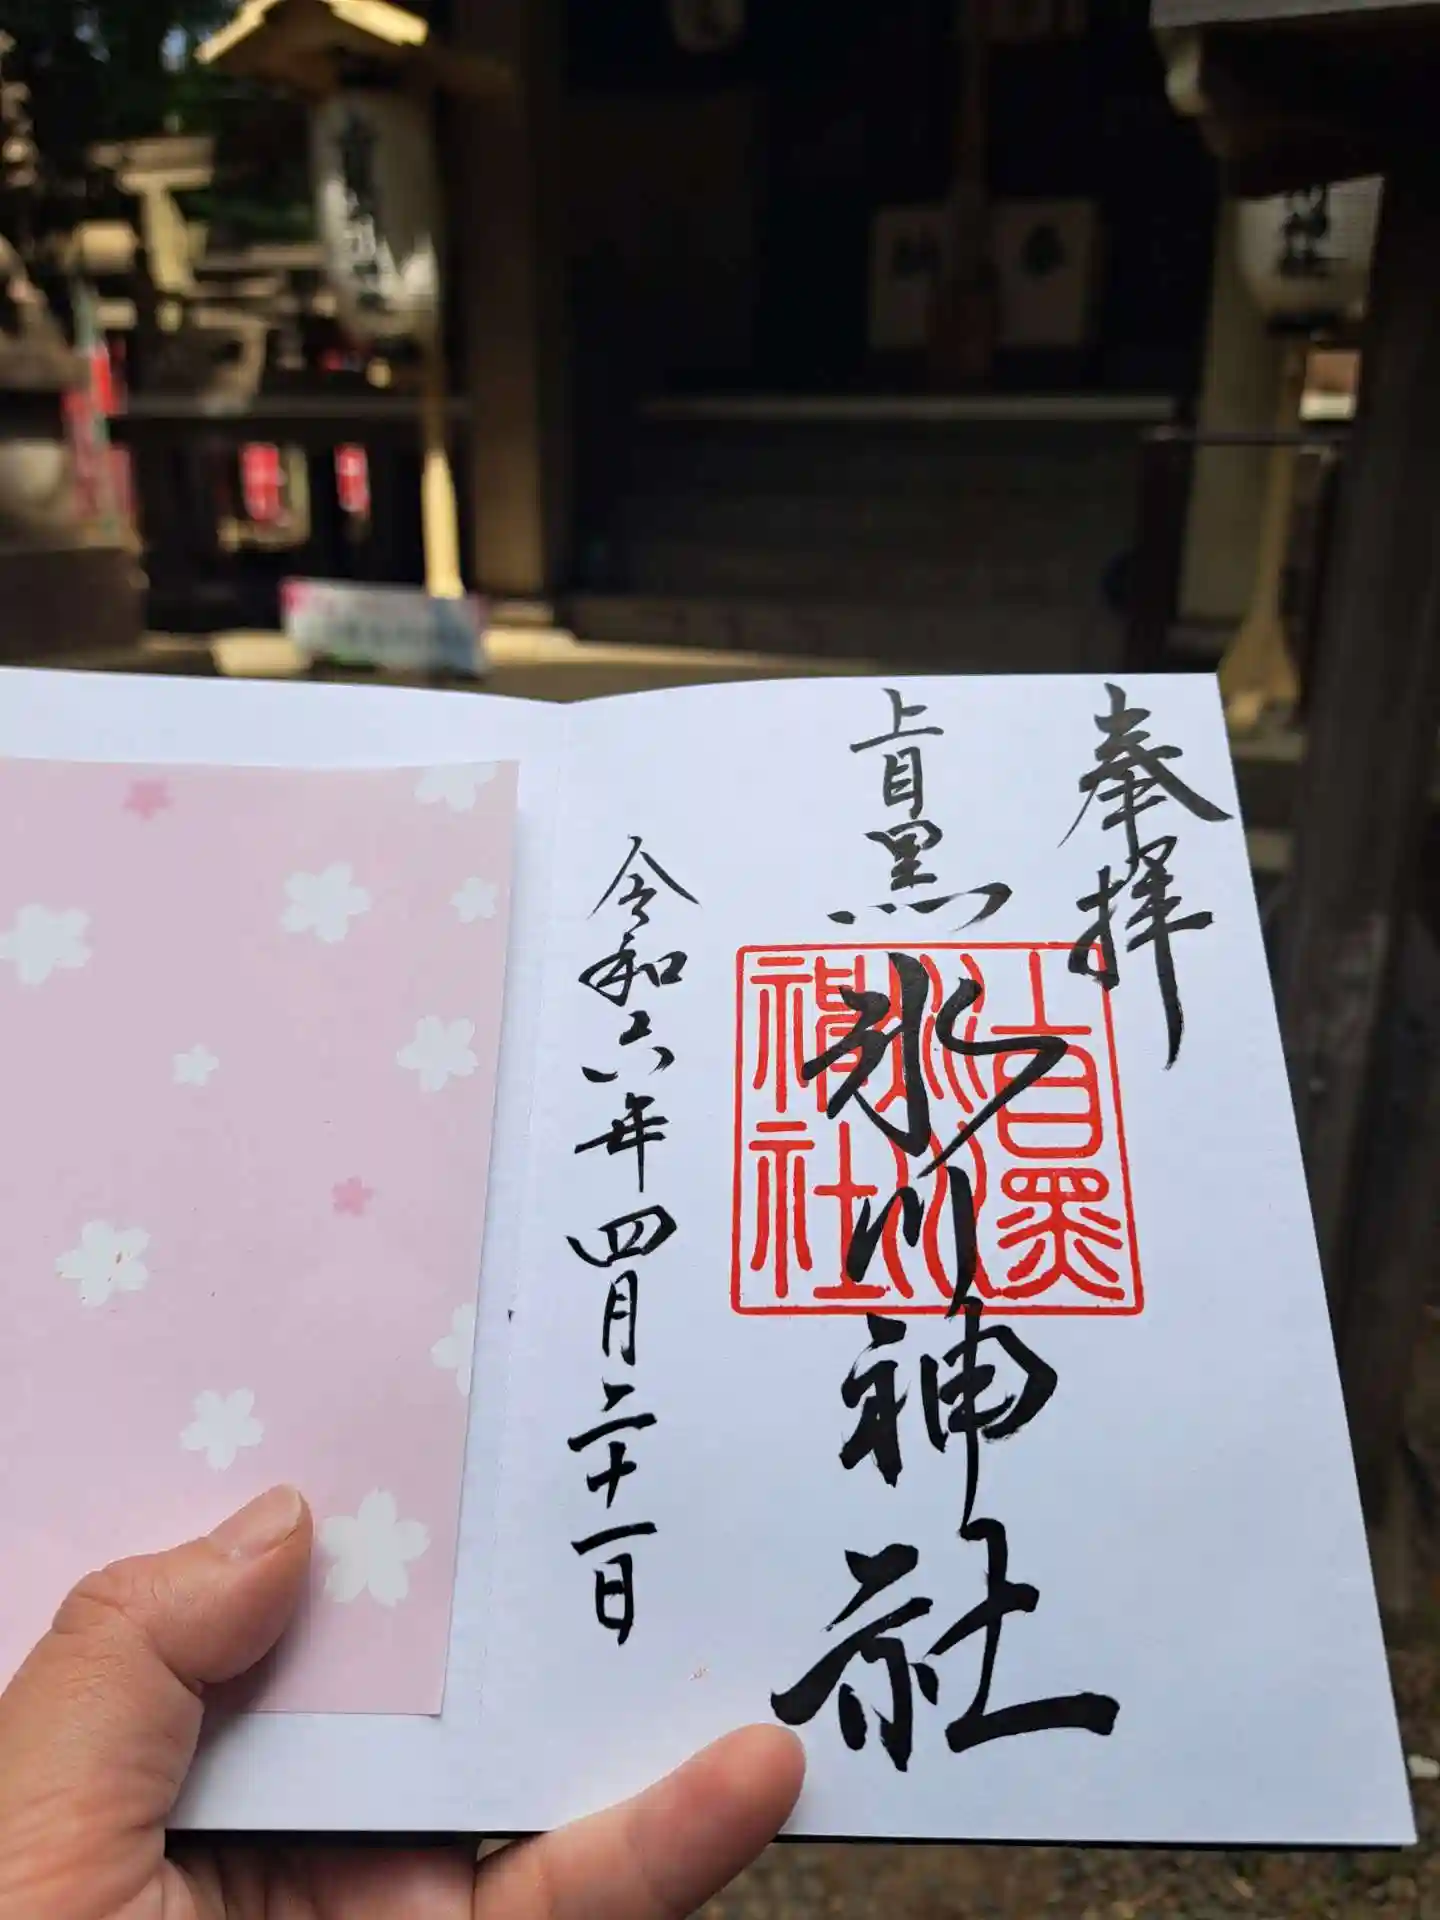 奉拝
上目黒
氷川神社
令和六年四月二十一日
上目黒
氷川
神社
奉